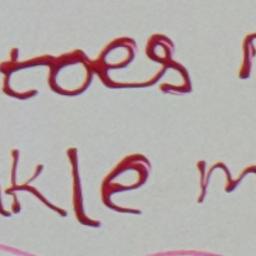 toes
kle m